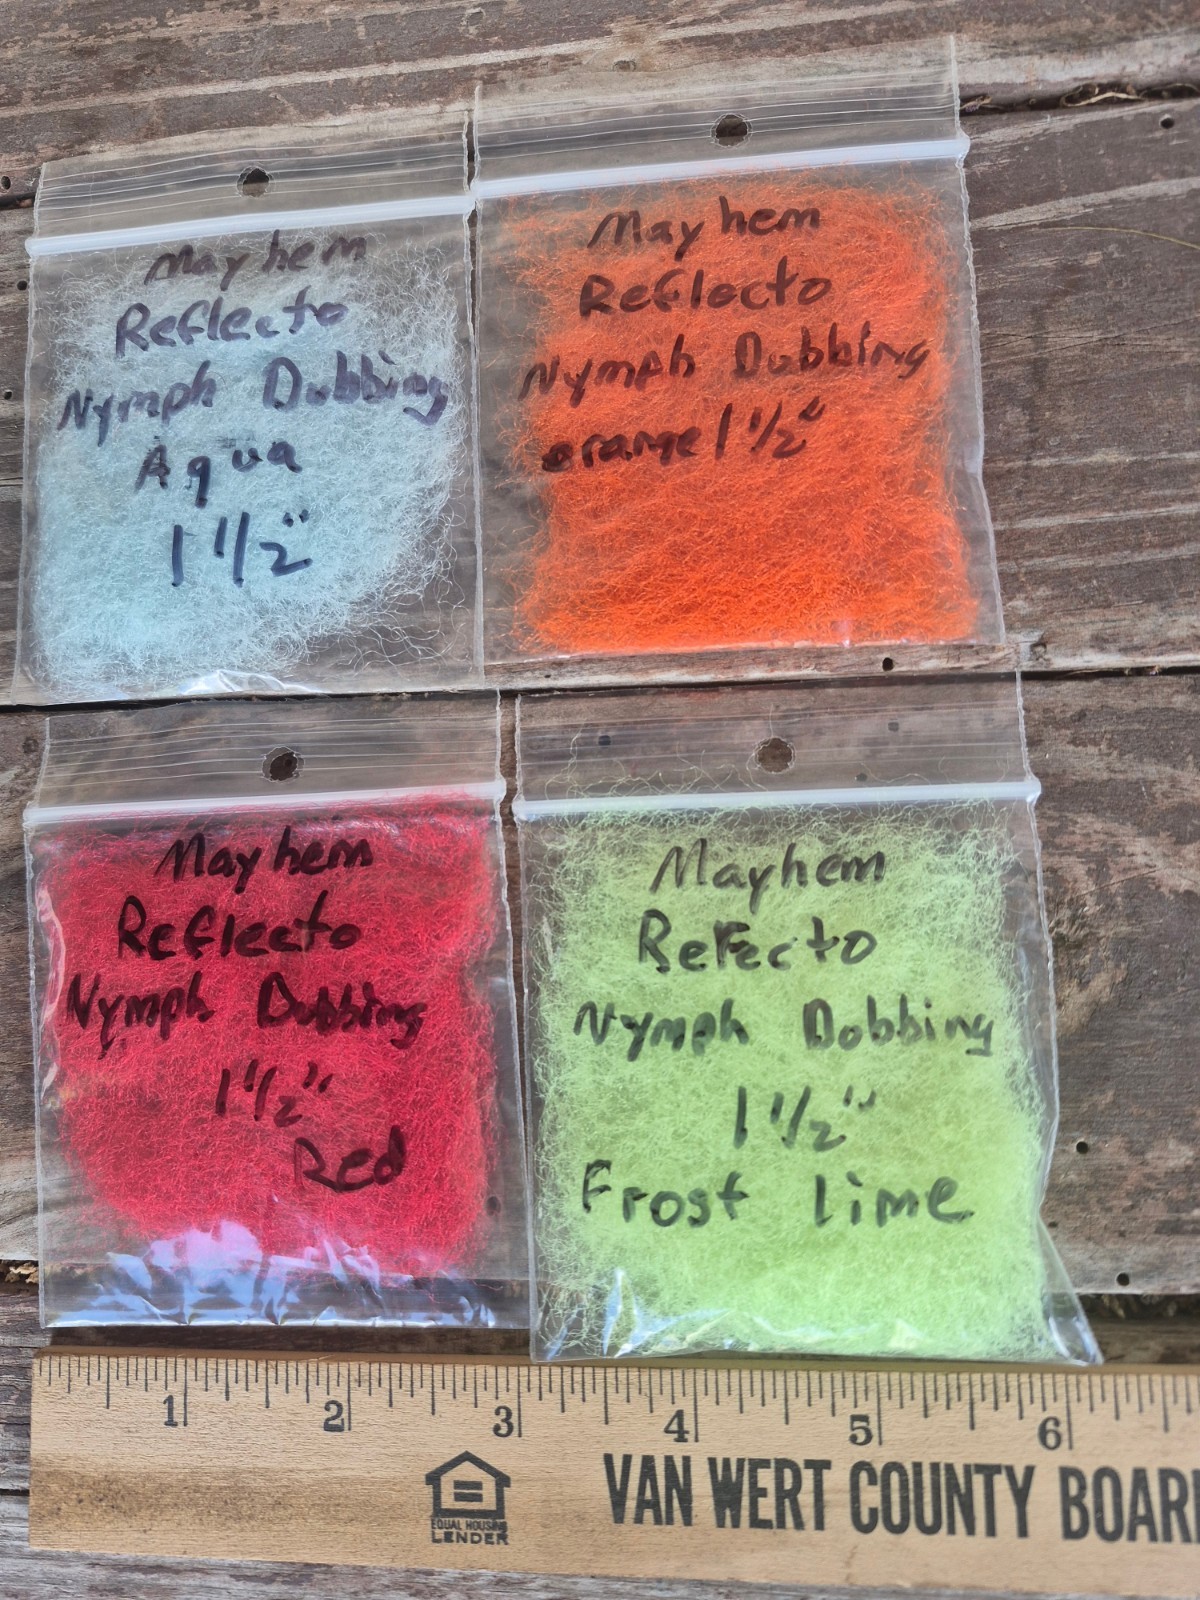 Mayhem
Reflecto
Nymph Dubbing
Aqua
1 1/2"
Mayhem
Reflecto
Nymph Dubbing
orange 1 1/2"
Mayhem
Reflecto
Nymph Dubbing
1 1/2"
Red
Mayhem
Reflecto
Nymph Dubbing
1 1/2"
Frost Lime
1 2 3 4 5 6
EQUAL HOUSING
LENDER
VAN WERT COUNTY BOAR